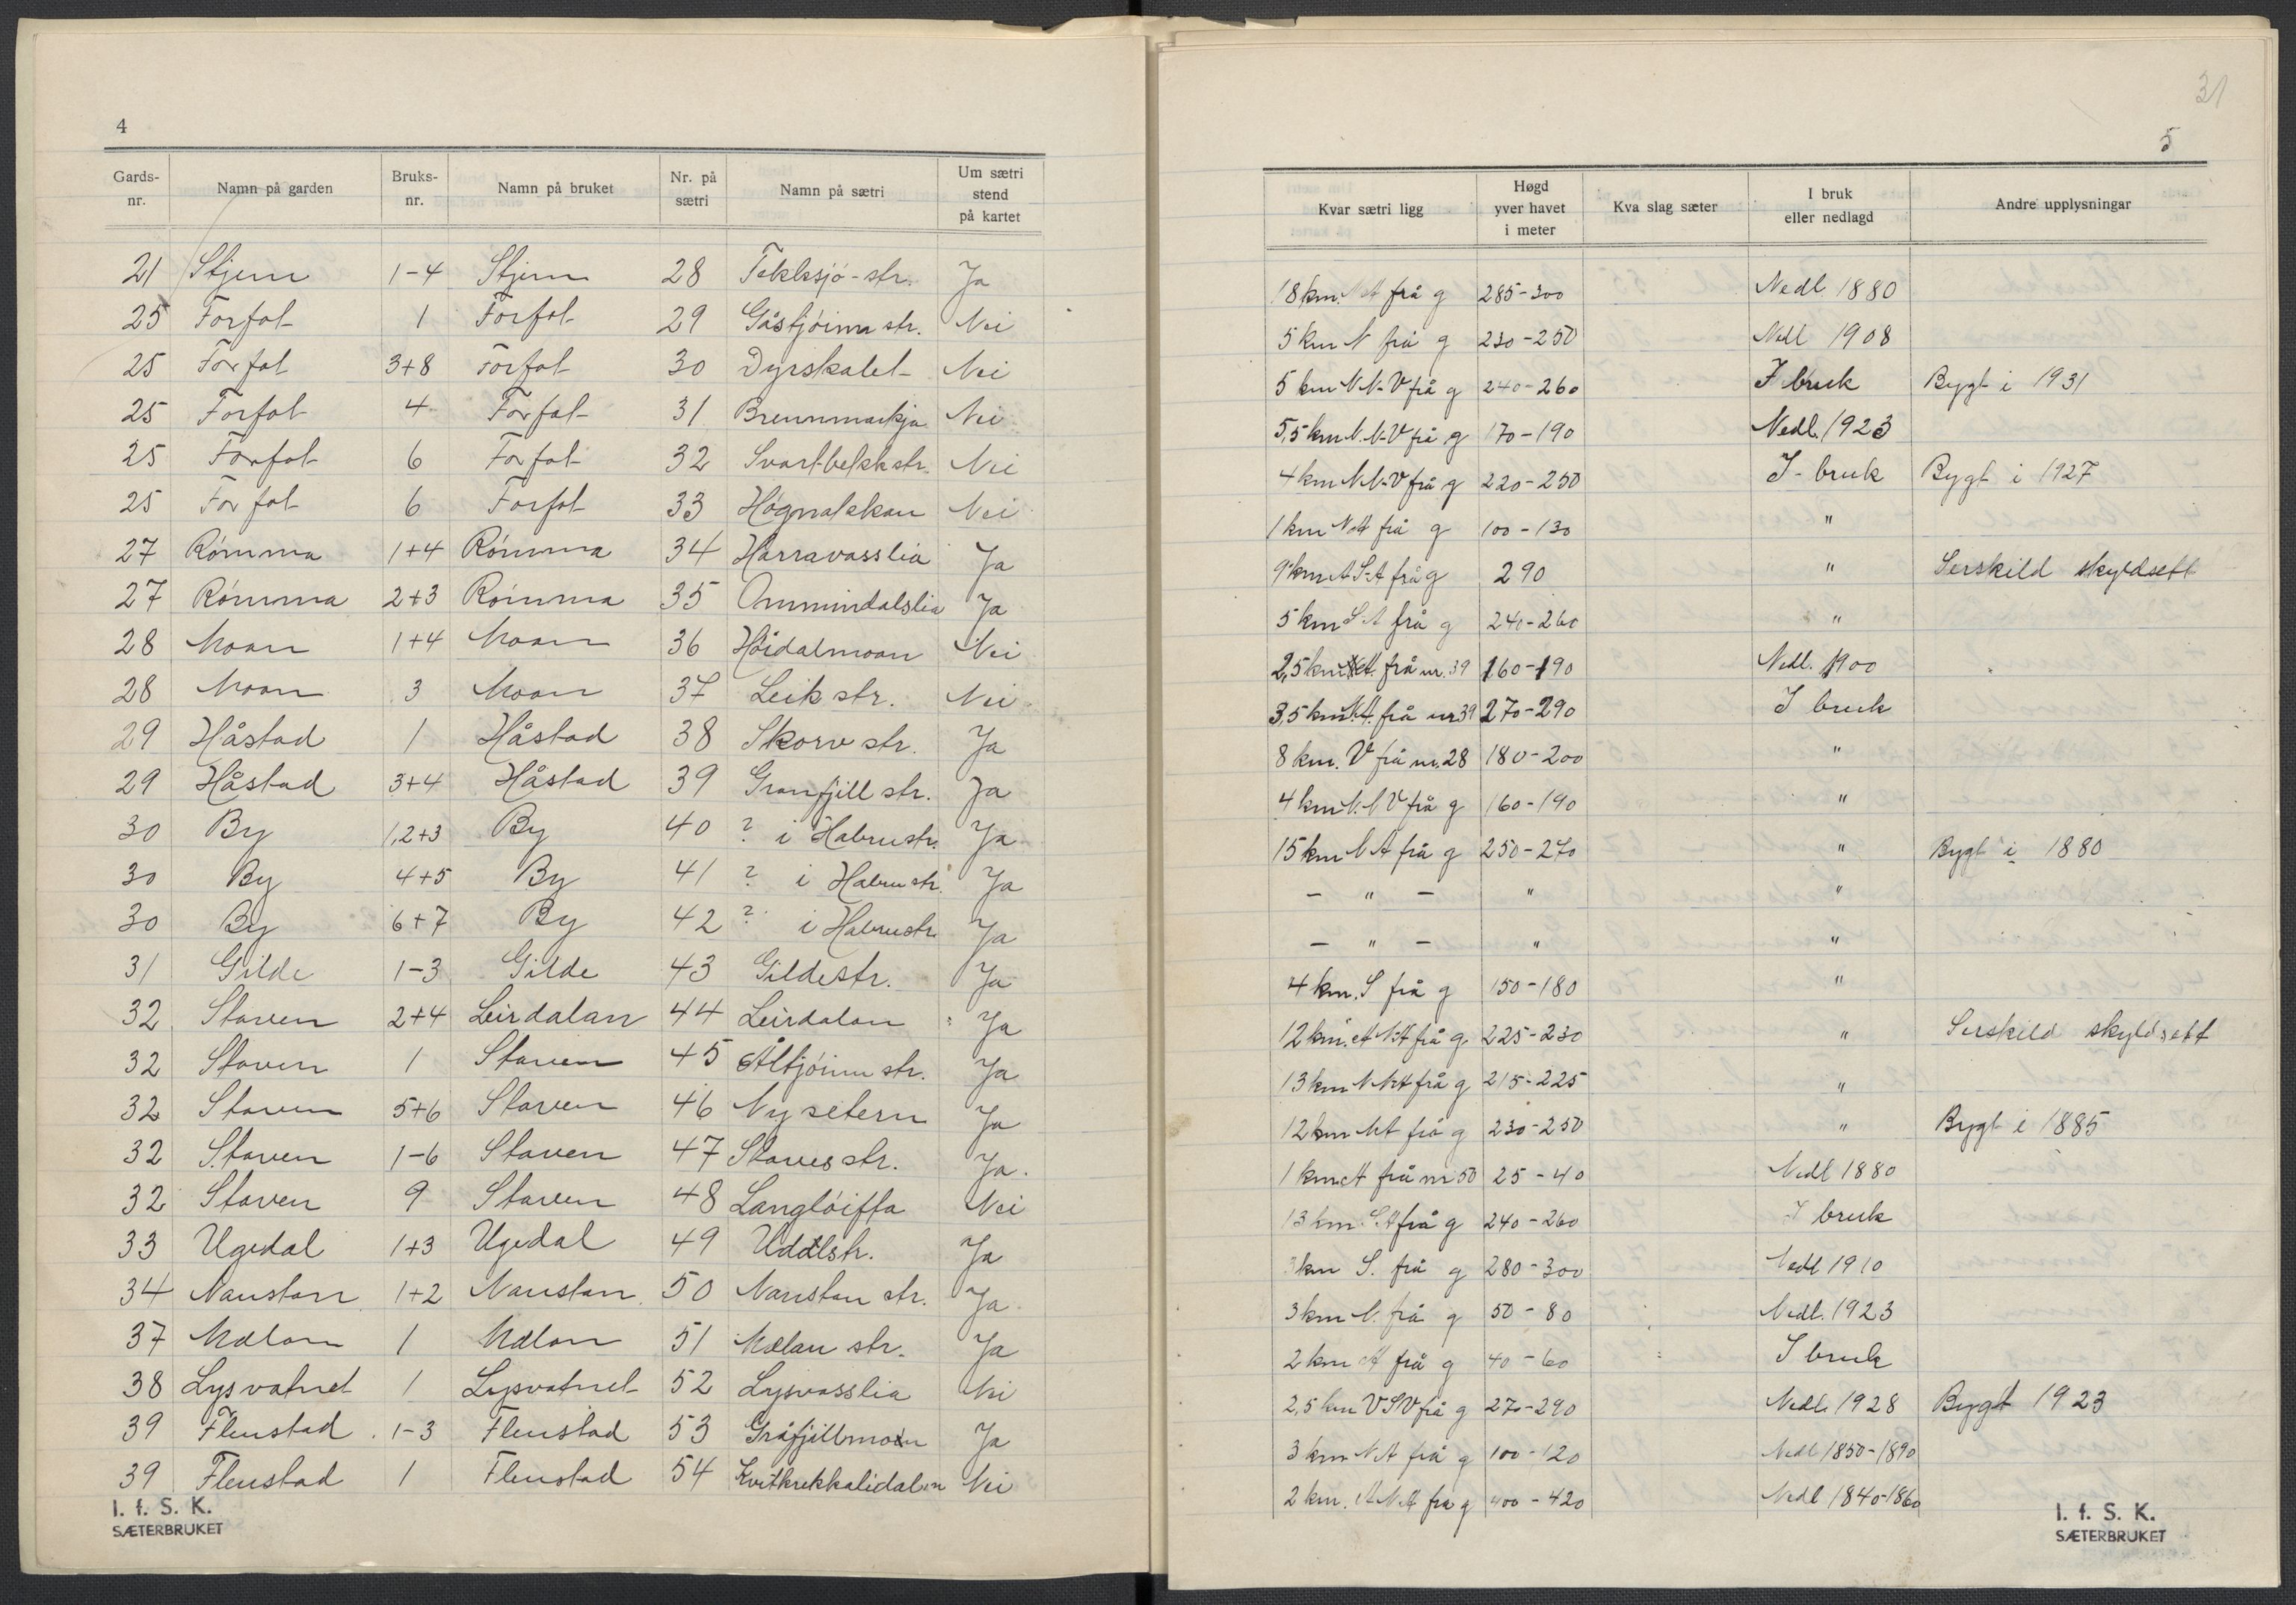 4
Gards-nr. Namn på garden Bruks-nr. Namn på bruket Nr. på sætri Namn på sætri Um sætri stend på kartet
21 Stjern 1-4 Stjern 28 Teklesjö-str. Ja
25 Forfot 1 Forfot 29 Gåstjöinn str. Nei
25 Forfot 3+8 Forfot 30 Dyrskalet Nei
25 Forfot 4 Forfot 31 Brennmarkja Nei
25 Forfot 6 Forfot 32 Svartbekkstr. Nei
25 Forfot 6 Forfot 33 Nei
27 Römma 1+4 Römma 34 Harravasslia Ja
27 Römma 2+3 Römma 35 Ommundalslia Ja
28 Moan 1+4 Moan 36 Höidalmoan Nei
28 Moan 3 Moan 37 Leikstr. Nei
29 Håstad 1 Håstad 38 Skorv str. Ja
29 Håstad 3+4 Håstad 39 Granfjill str. Ja
30 By 1,2+3 By 40 ? i Habrustr. Ja
30 By 4+5 By 41 ? i Habrustr. Ja
30 By 6+7 By 42 ? i Habrustr. Ja
31 Gilde 1-3 Gilde 43 Gildestr. Ja
32 Staven 2+4 Leirdalan 44 Leirdalan Ja
32 Staven 1 Staven 45 Åltjöinn str. Ja
32 Staven 5+6 Staven 46 Nysetern Ja
32 Staven 1-6 Staven 47 Staves str. Ja.
32 Staven 9 Staven 48 Langlöifta Nei
33 Ugedal 1+3 Ugedal 49 Uddlstr. Ja
34 Naustan 1+2 Naustan 50 Naustan str. Ja
37 Mælan 1 Mælan 51 Mælan str. Ja
38 Lysvatnet 1 Lysvatnet 52 Lysvasslia Nei
39 Flenstad 1-3 Flenstad 53 Gråfjillmoen Ja
39 Flenstad 1 Flenstad 54 Kvitkrekkalidalen Nei
I. f. S. K.
SÆTERBRUKET
31
5
Kvar sætri ligg Høgd yver havet i meter Kva slag sæter I bruk eller nedlagd Andre upplysningar
18 km. NA frå g 285-300 Nedl. 1880
5 km N frå g 230-250 Nedl 1908
5 km N N-V frå g 240-260 I bruk Bygt i 1931
5,5 km N.N-V frå g 170-190 Nedl. 1923
4 km N N-V frå g 220-250 I-bruk Bygt i 1927
1 km NA frå g 100-130 "
9 km A S-A frå g 290 " Serskild skyldsett
5 km S A frå g 240-260 "
2,5 km A. frå nr. 39 160-190 Nedl. 1900
3,5 km N.A. frå nr 39 270-290 I bruk
8 km. V frå nr. 28 180-200 "
4 km N. N V frå g 160-190 "
15 km N A frå g 250-270 " Bygt i 1880
- " - " "
- " - " "
4 km. S frå g 150-180 "
12 km. A N-A frå g 225-230 " Serskild skyldsett
13 km N NA frå g 215-225 "
12 km NA frå g 230-250 " Bygt i 1885
1 km A frå nr 50 25-40 Nedl 1880
13 km S A frå g 240-260 I bruk
3 km S. frå g 280-300 Nedl 1910
3 km N. frå g 50-80 Nedl. 1923
2 km A frå g 40-60 I bruk
2,5 km V SV frå g 270-290 Nedl. 1928 Bygt 1923
3 km N A frå g 100-120 Nedl 1850-1890
2 km. A N A frå g 400-420 Nedl 1840-1860
I. f. S. K.
SÆTERBRUKET